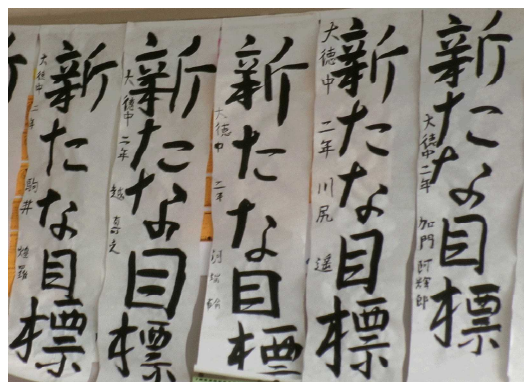 新たな目標
大徳中 二年
新たな目標
大徳中 二年 川尻 遥
新たな目標
大徳中 二年
新たな目標
大徳中 二年 越
新たな目標
大徳中 二年 駒井